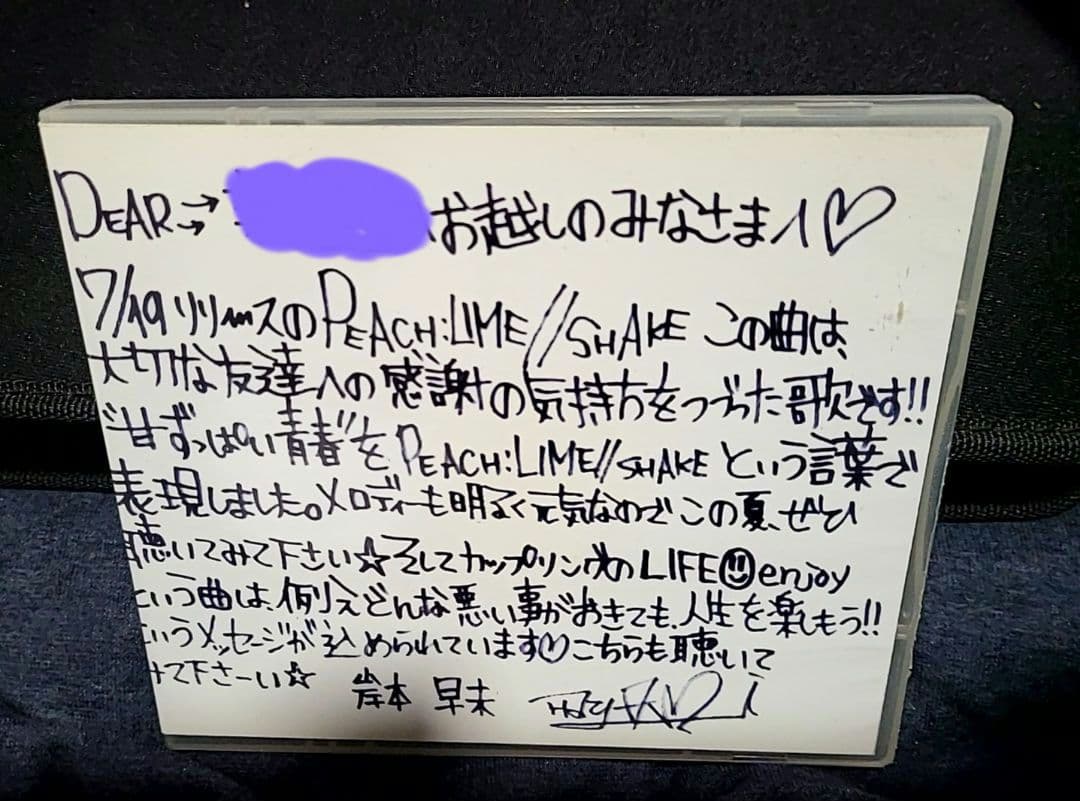 DEAR→ お越しのみなさまへ♡
7/19リリースのPEACH:LIME//SHAKE この曲は、
大切な友達への感謝の気持ちをつづった歌です!!
"甘ずっぱい青春"をPEACH:LIME//SHAKEという言葉で
表現しました。メロディーも明るく元気なのでこの夏、ぜひ
聴いてみて下さい☆そしてカップリングのLIFE☺enjoy
という曲は、例えどんな悪い事がおきても、人生を楽しもう!!
というメッセージが込められています♡こちらも聴いて
みて下さーい☆ 岸本 早未